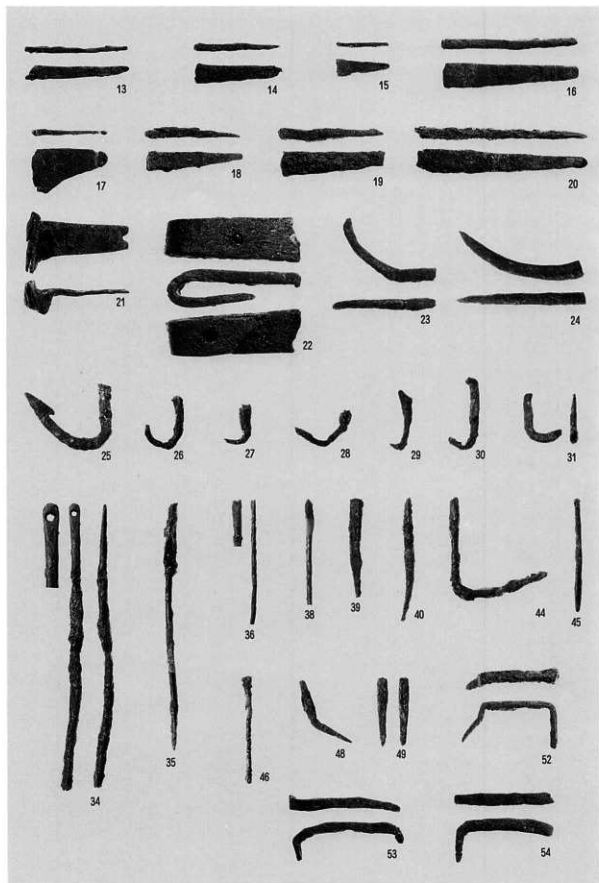 13 14 15 16
17 18 19 20
21 22 23 24
25 26 27 28 29 30 31
34 35 36 38 39 40 44 45
46 48 49 52
53 54